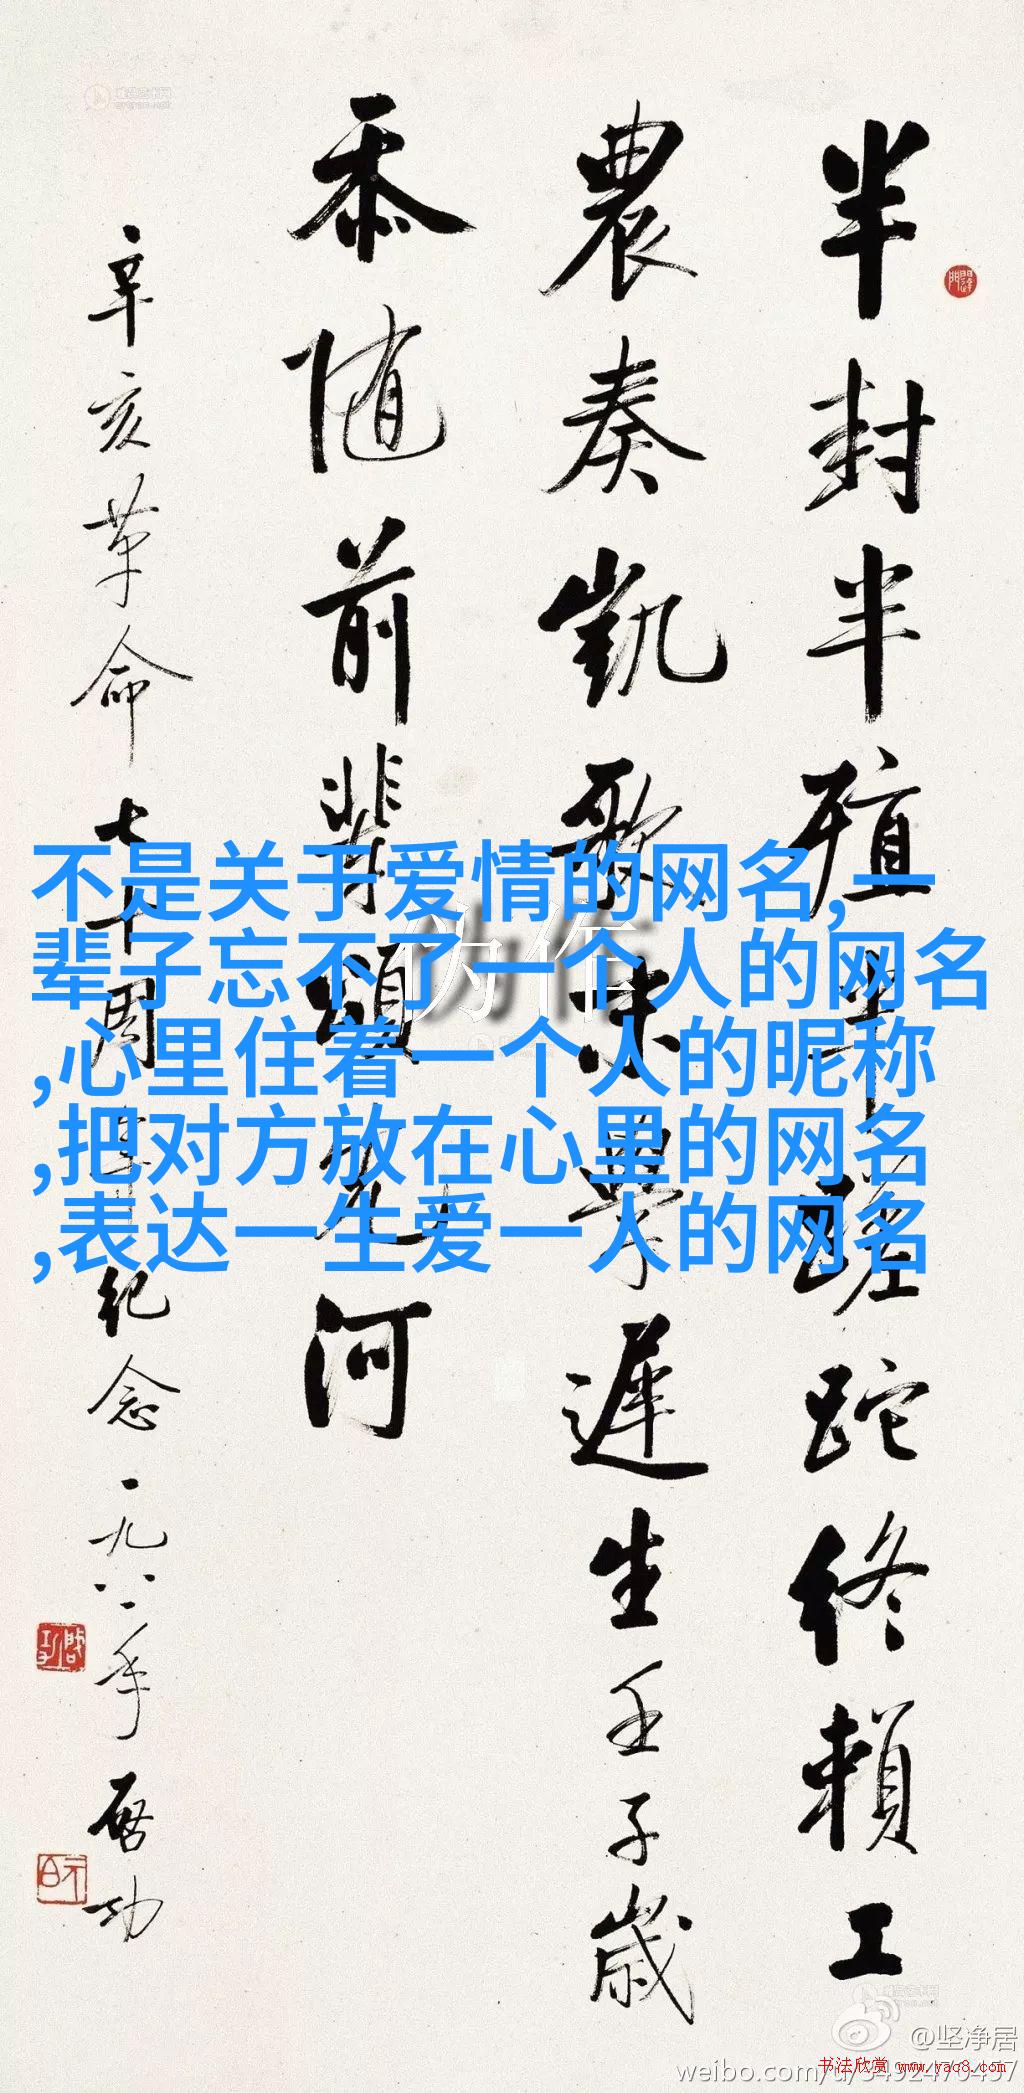 半封半殖半蹉跎終賴工
農奏凱歌末學遲生壬子歲
忝随前輩頌河
辛亥革命七十周年紀念一九八一年啓功
不是关于爱情的网名,一
辈子忘不了一个人的网名
,心里住着一个人的昵称
,把对方放在心里的网名
,表达一生爱一人的网名
伪作
@坚净居
书法欣赏 www.yac8.com